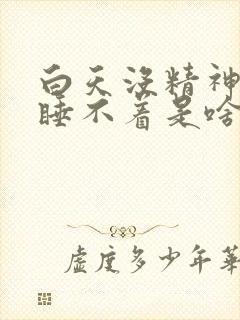 白天没精神
睡不着是啥
虚度多少年华